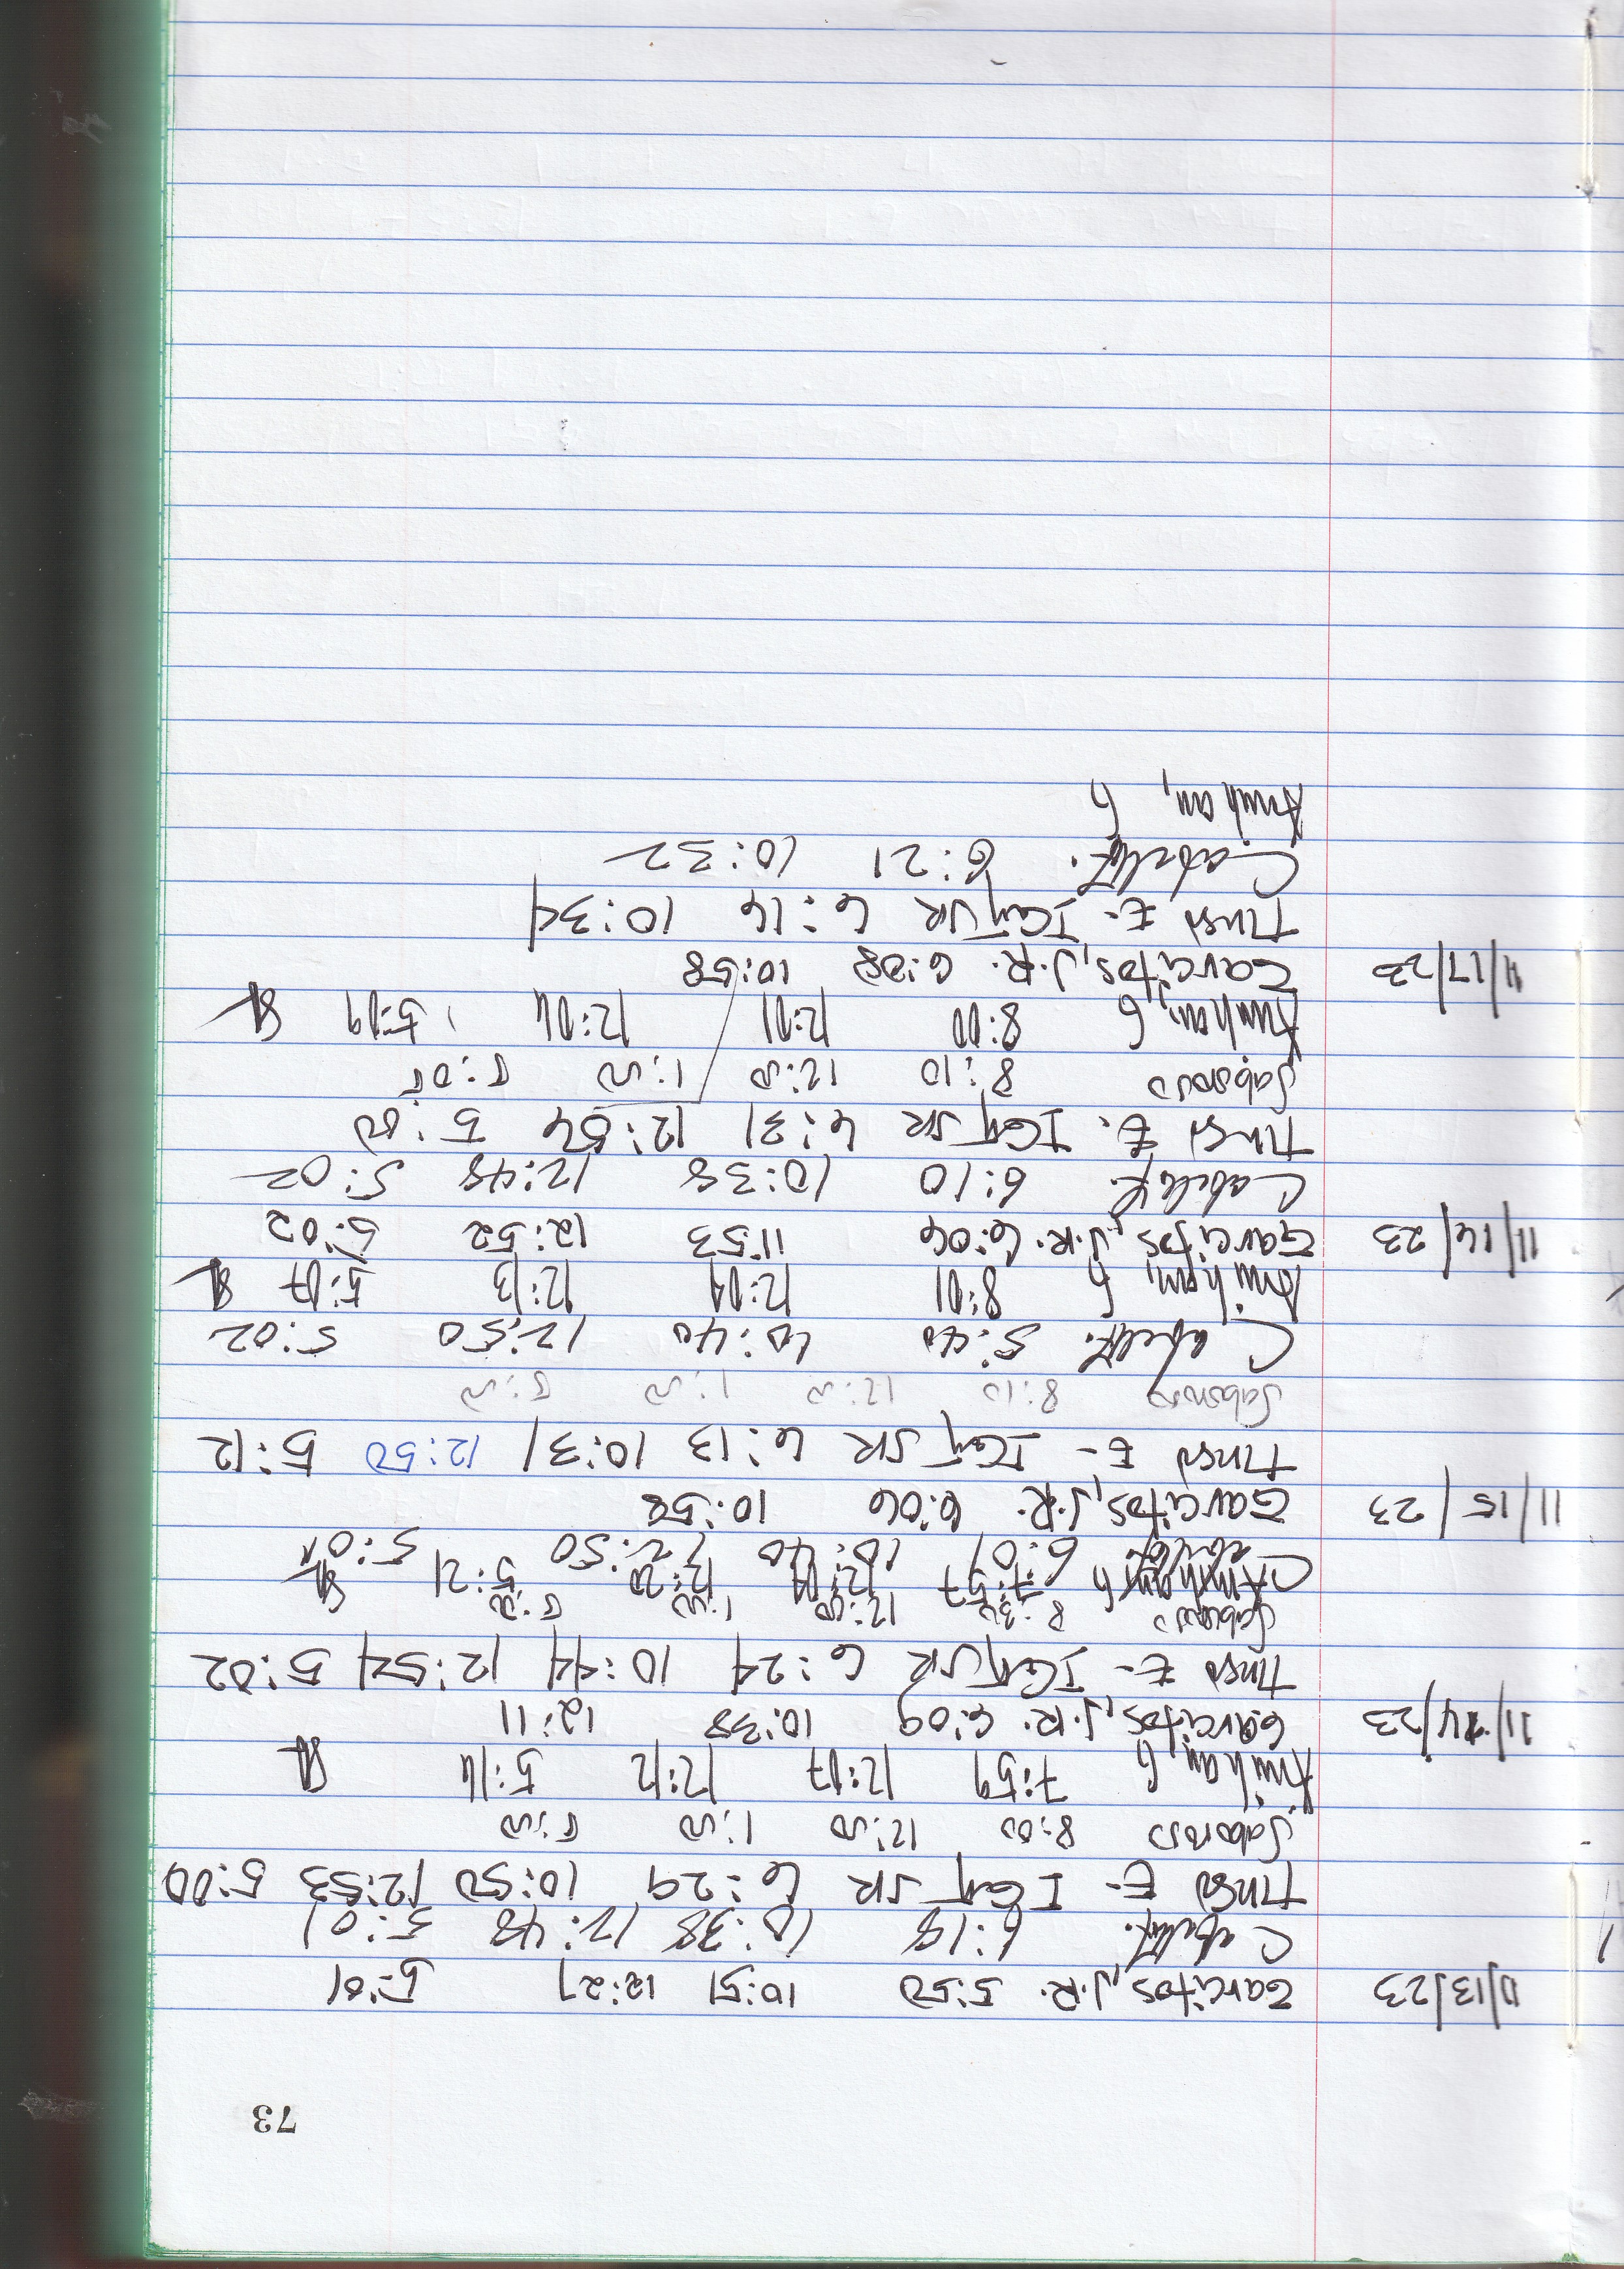 73
11/13/23 Garcitos, J.R. 5:50 10:51 12:27 5:01
Cabellf. 6:18 10:38 12:48 5:01
TINSA E. IGT JR 6:29 10:50 12:53 5:00
Sabors 8:00 12:00 1:00 5:00
Amihan, G 7:59 12:07 12:12 5:14
11/14/23 Garcitos, J.R. 6:09 10:38 12:11
TINSA E- 6:24 10:44 12:54 5:02
8:30 12:00 1:00 5:00
Amihan G 7:57 12:20 5:21
6:07 10:40 12:50 5:01
11/15/23 Garcitos, J.R. 6:06 10:58
TINSA E- 6:13 10:31 12:50 5:12
8:10 12:00 1:00 5:00
5:40 10:40 12:50 5:02
Amihan, G 8:01 12:09 12:13 5:17
11/16/23 Garcitos, J.R. 6:06 11:53 12:52 5:02
6:10 10:38 12:48 5:02
TINSA E. 6:31 12:54 5:00
8:10 12:00 1:00 5:05
Amihan, G 8:00 12:01 12:04 5:19
11/17/23 Garcitos, J.R. 6:08 10:58
TINSA E- 6:16 10:34
6:21 10:32
Amihan, G